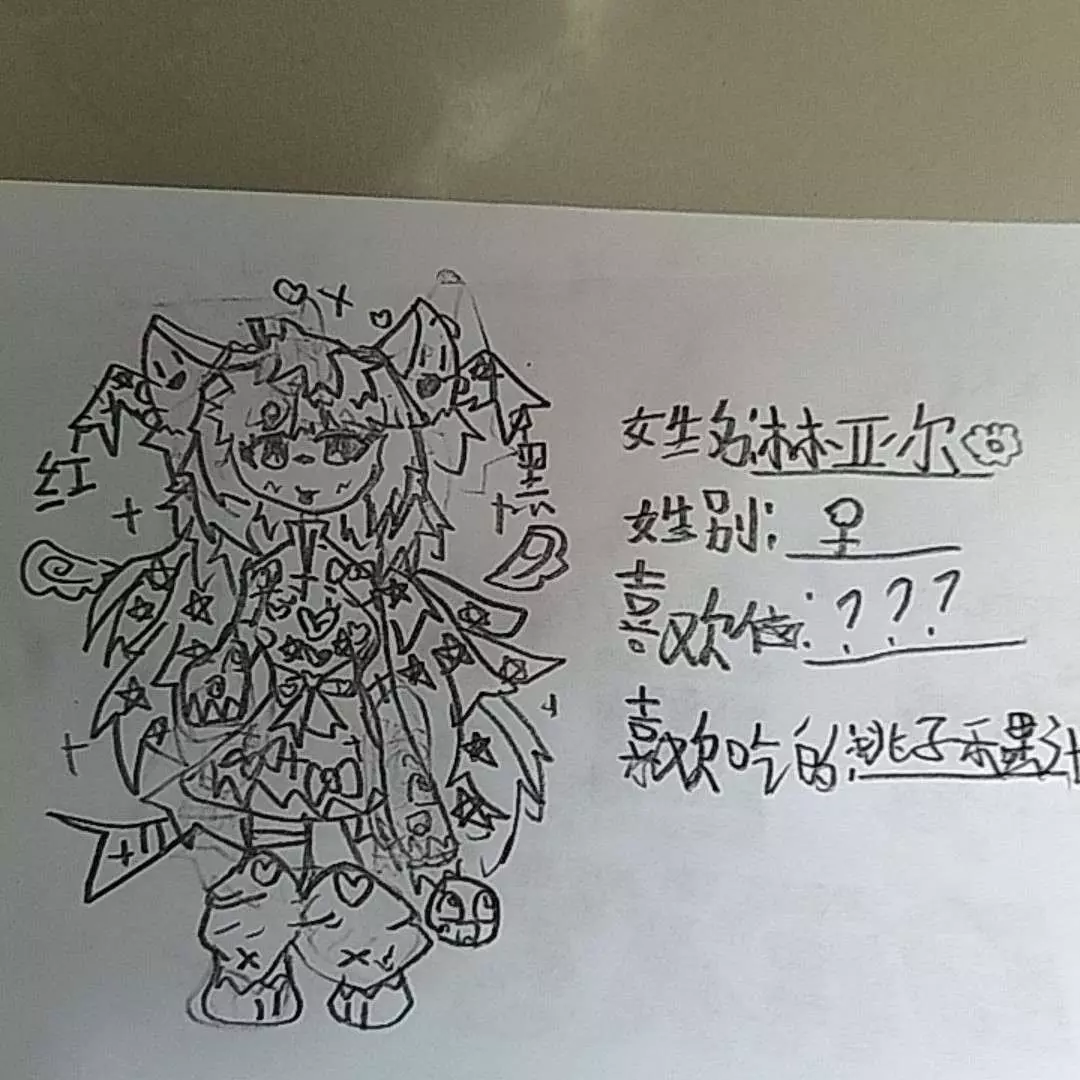 红
黑
姓名:林亚尔
姓别: 早
喜欢值: ???
喜欢吃的:桃子乐果汁